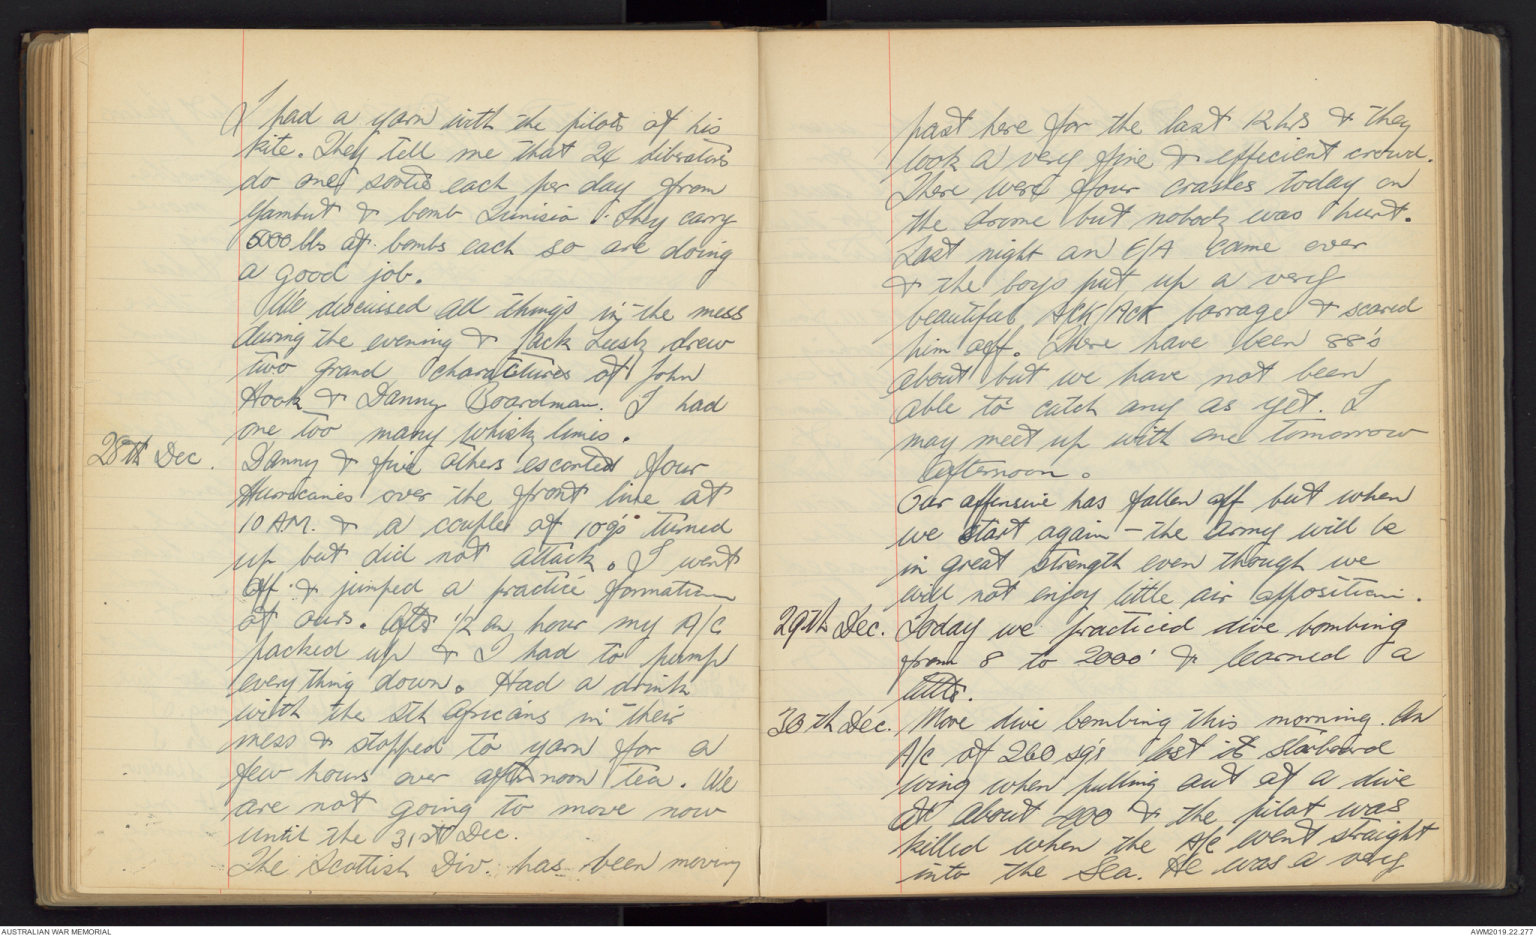 I had a yarn with the pilots of his
kite. They tell me that 24 liberators
do one sortie each per day from
Gambut & bomb Tunisia. They carry
5000 lbs of bombs each so are doing
a good job.
We discussed all things in the mess
during the evening & Jack Lusk drew
two grand charactitures of John
Hook & Danny Boardman. I had
one too many whisky limes.
28th Dec. Danny & five others escorted four
Hurricanes over the front line at
10 AM. & a couple of 109's turned
up but did not attack. I went
off & jumped a practice formation
of ours. After 1/2 an hour my A/C
packed up & I had to pump
everything down. Had a drink
with the Sth Africans in their
mess & stopped to yarn for a
few hours over afternoon tea. We
are not going to move now
until the 31st Dec.
The Scottish Div. has been moving
past here for the last 12 hrs & they
look a very fine & efficient crowd.
There were four crashes today on
the drome but nobody was hurt.
Last night an E/A came over
& the boys put up a very
beautiful ACK/ACK barrage & scared
him off. There have been 88's
about but we have not been
able to catch any as yet. I
may meet up with one tomorrow
afternoon.
Our offensive has fallen off but when
we start again - the army will be
in great strength even though we
will not enjoy little air opposition.
29th Dec. Today we practiced dive bombing
from 8 to 2000' & learned a
little.
30th Dec. More dive bombing this morning. An
A/c of 260 sq's lost its starboard
wing when pulling out of a dive
at about 2000 & the pilot was
killed when the A/c went straight
into the Sea. He was a very
AUSTRALIAN WAR MEMORIAL
AWM2019.22.277